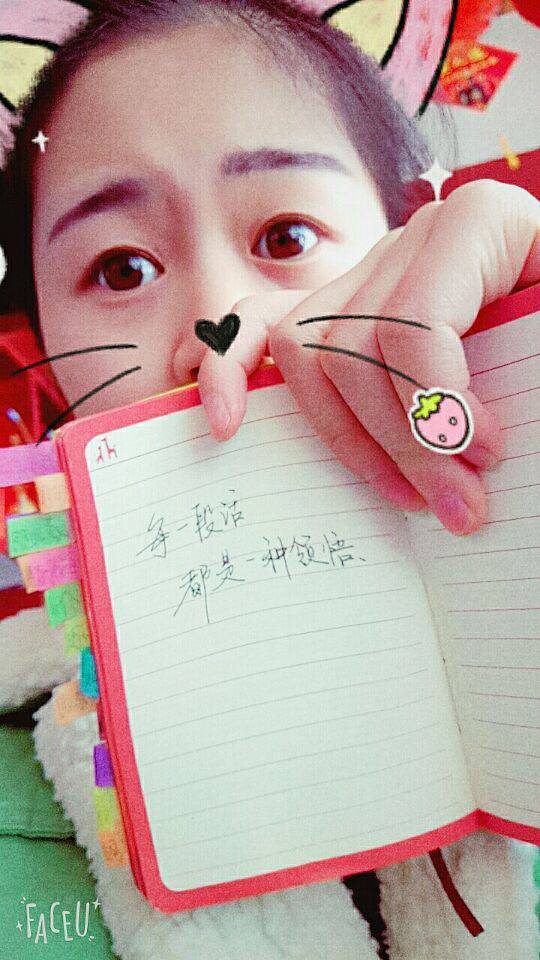 每一段活
都是一种领悟、
FACEU